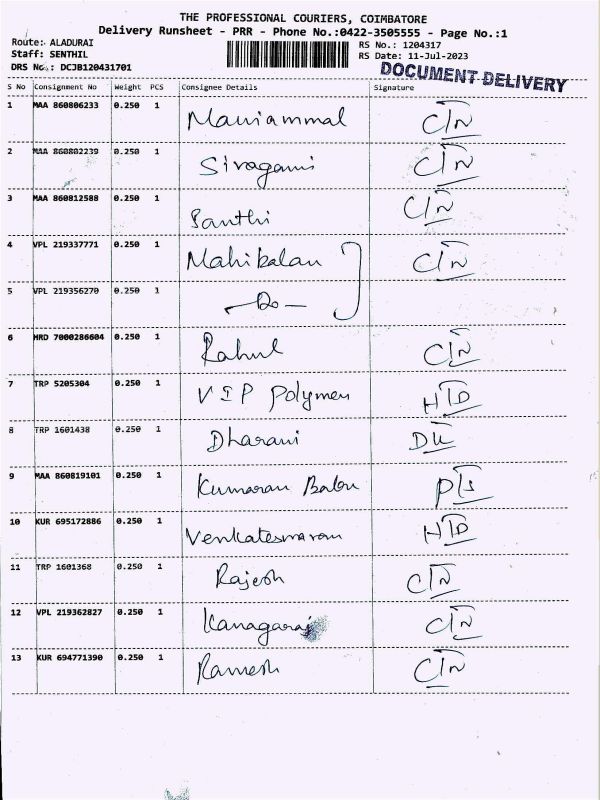 THE PROFESSIONAL COURIERS, COIMBATORE
Delivery Runsheet - PRR - Phone No.:0422-3505555 - Page No.:1
Route: ALADURAI RS No.: 1204317
Staff: SENTHIL RS Date: 11-Jul-2023
DRS No.: DCJB120431701 DOCUMENT DELIVERY
S No Consignment No Weight PCS Consignee Details Signature
1 MAA 860806233 0.250 1 Mariammal CTN
2 MAA 860802239 0.250 1 Sivagami CTN
3 MAA 860812588 0.250 1 Santhi CTN
4 VPL 219337771 0.250 1 Mahibalan CTN
5 VPL 219356270 0.250 1 -Do-
6 HRD 7000286604 0.250 1 Rahul CTN
7 TRP 5205304 0.250 1 VIP Polymer HTD
8 TRP 1601438 0.250 1 Dharani
9 MAA 860819101 0.250 1 Kumaran Babu
10 KUR 695172886 0.250 1 Venkateswaran HTD
11 TRP 1601368 0.250 1 Rajesh CTN
12 VPL 219362827 0.250 1 Kanagaraj CTN
13 KUR 694771390 0.250 1 Ramesh CTN